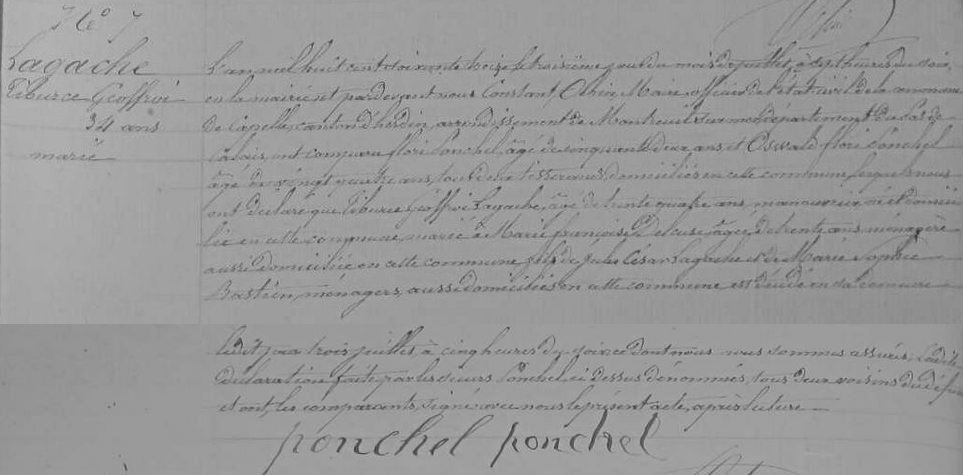 N° 7
Lagache
Tiburce Geoffroi
34 ans
marié
L'an mil huit cent soixante treize le troisième jour du mois de juillet, à sept heures du soir,
en la mairie et par devant nous Constant Maire officier de l'état civil de la commune
de Capelle, canton d'hesdin, arrondissement de Montreuil sur mer département du Pas de
Calais, ont comparu flori Ponchel, âgé de cinquante deux ans, et Oswald flori Ponchel
âgé de vingt quatre ans, tous deux tisserands, domiciliés en cette commune, lesquels nous
ont déclaré que Tiburce Geoffroi Lagache, âgé de trente quatre ans, manouvrier, né et domici
lié en cette commune, marié à Marie françoise âgée de trente ans, ménagère
aussi domiciliée en cette commune, fils de Jules César Lagache et de Marie Sophie
Bastien, ménagers, aussi domiciliés en cette commune est décédé en sa demeure
ledit jour trois juillet, à cinq heures du soir, ce dont nous nous sommes assurés. Ladite
déclaration faite par les sieurs Ponchel, ci dessus dénommés, tous deux voisins du défunt
et ont, les comparants, signé avec nous le présent acte, après lecture
ponchel ponchel